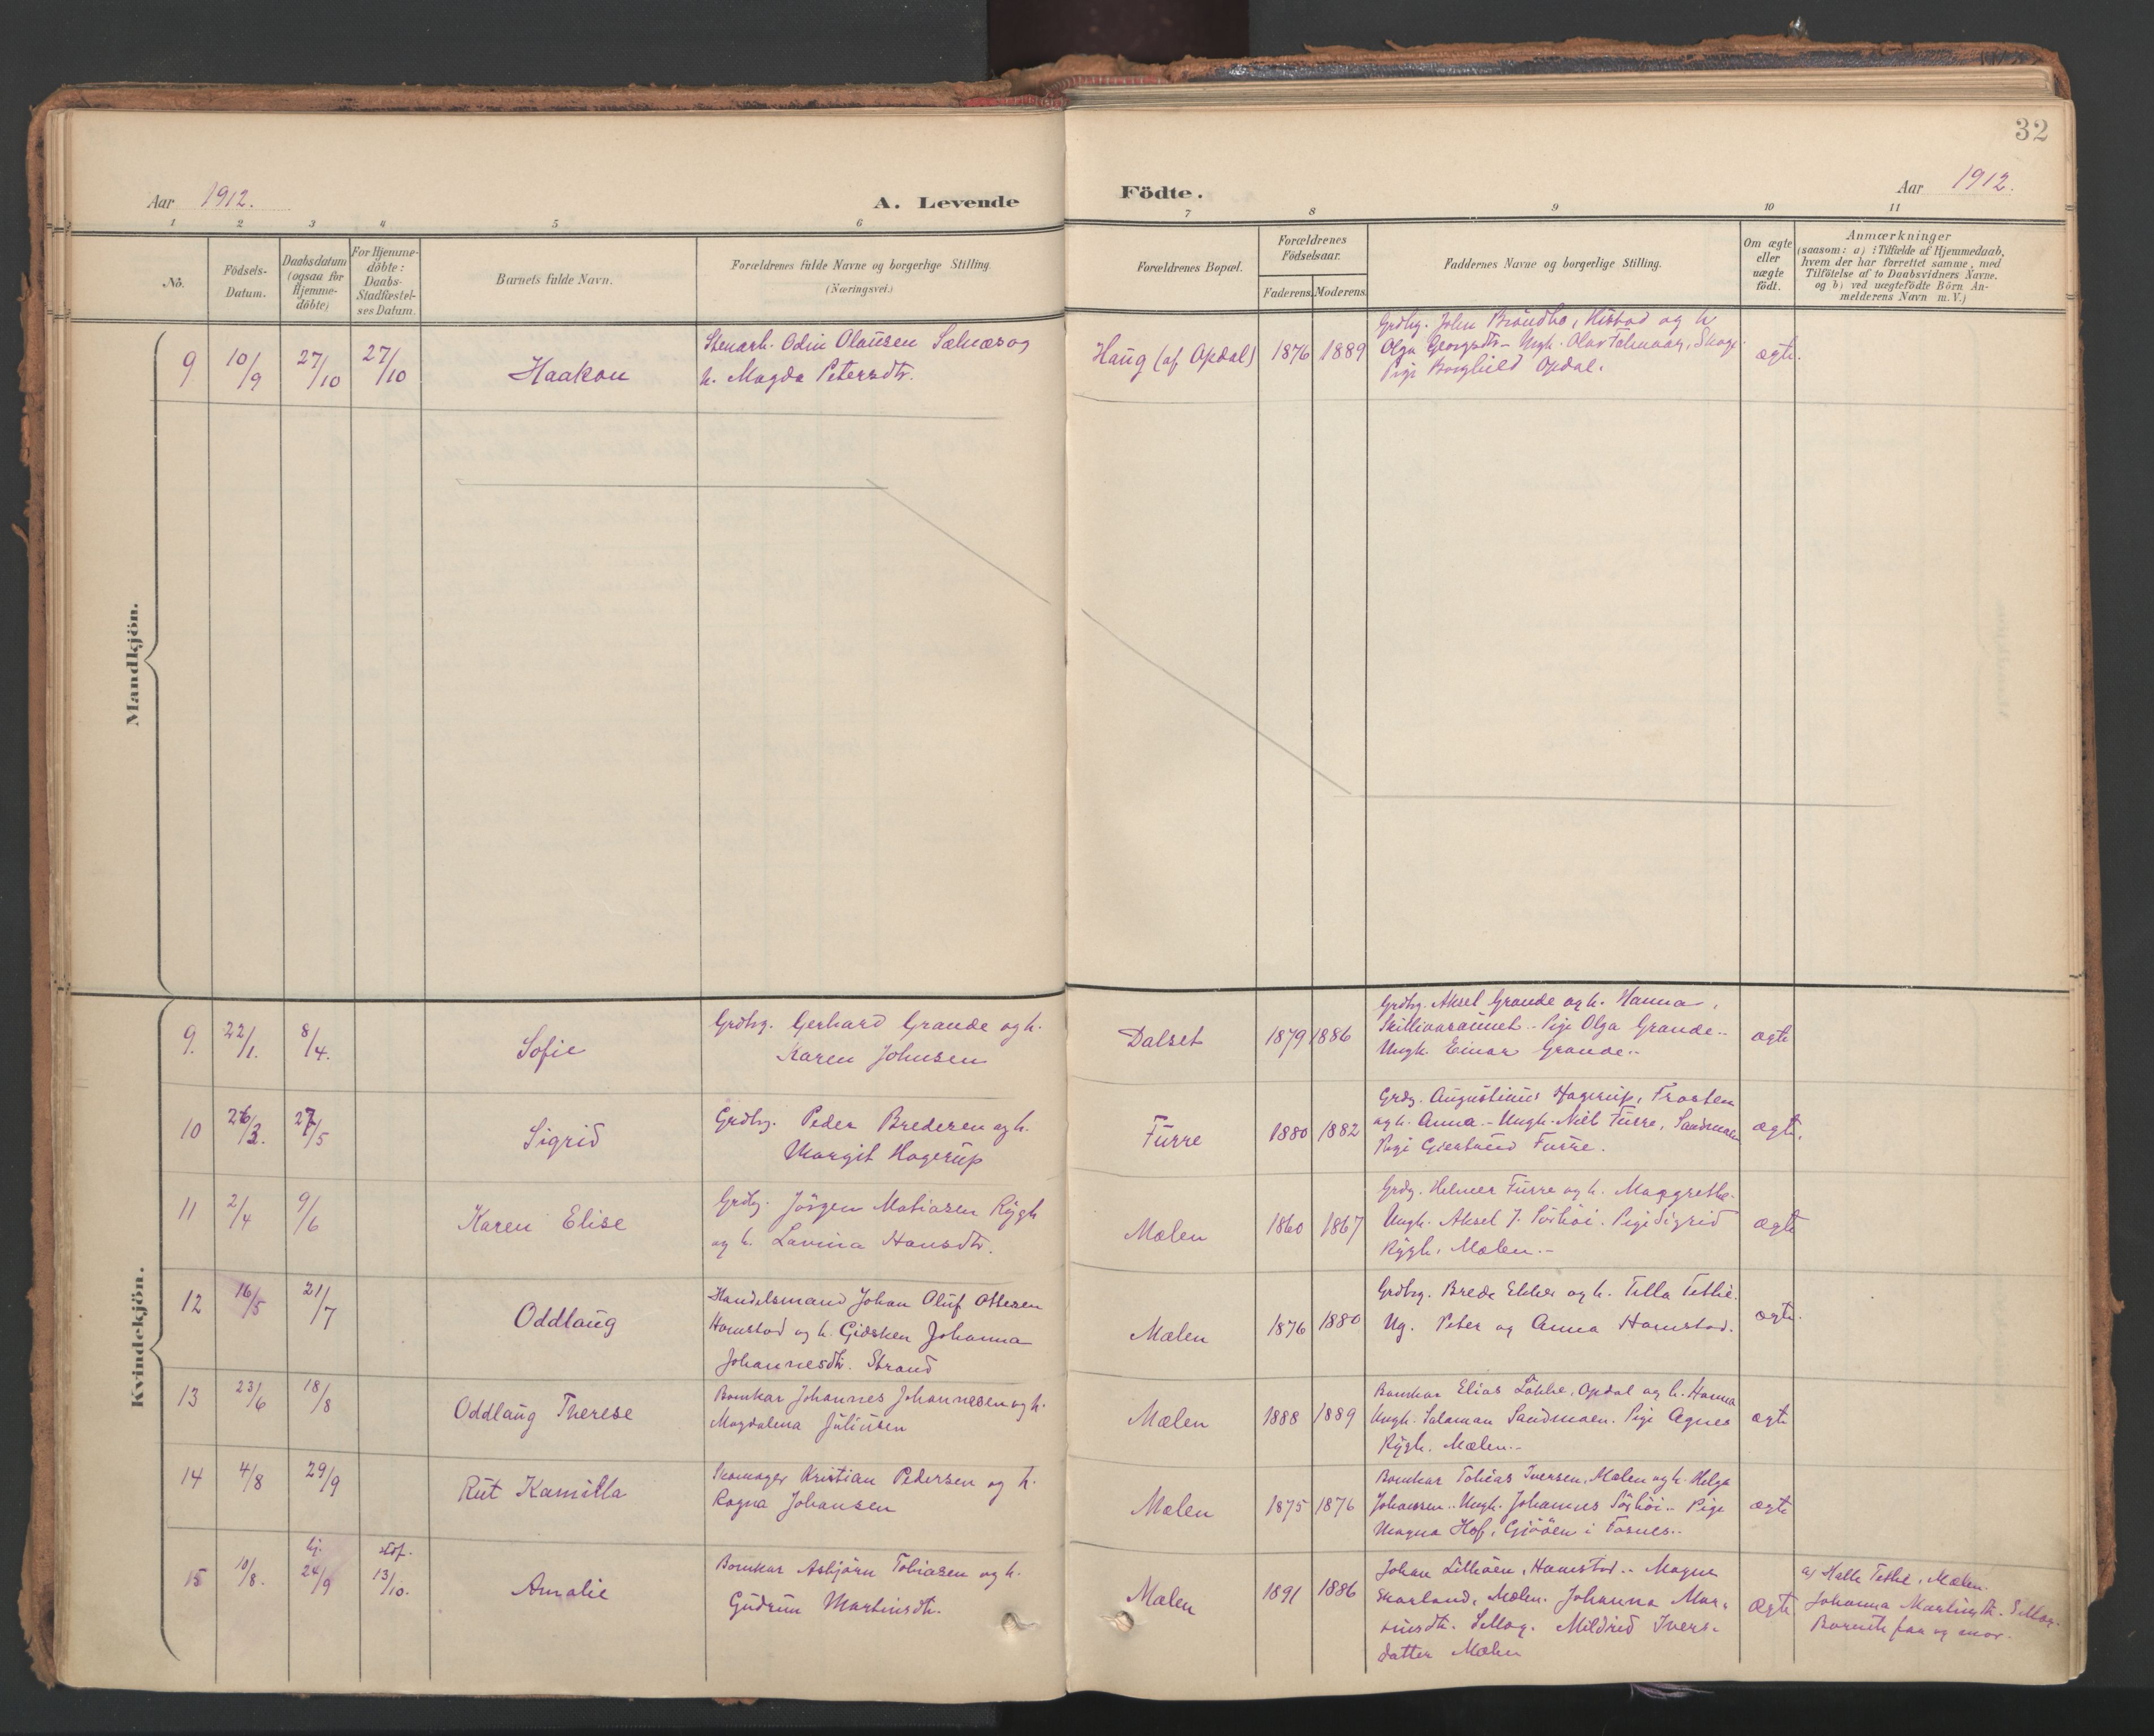 32
Aar 1912.
A. Levende
Födte.
Aar 1912.
1 2 3 4 5 6 7 8 9 10 11
No.
Födsels-
Datum.
Daabsdatum
(ogsaa for
Hjemme-
döbte)
For Hjemme-
döbte:
Daabs-
Stadfæstel-
ses Datum.
Barnets fulde Navn.
Forældrenes fulde Navne og borgerlige Stilling.
(Næringsvei.)
Forældrenes Bopæl.
Forældrenes
Födselsaar.
Faderens. Moderens.
Faddernes Navne og borgerlige Stilling.
Om ægte
eller
uægte
födt.
Anmærkninger
(saasom: a) i Tilfælde af Hjemmedaab,
hvem der har forrettet samme, med
Tilföielse af to Daabsvidners Navne,
og b) ved uægtefödte Börn An-
melderens Navn m. V.)
Mandkjön.
9 10/9 27/10 27/10 Haakon
Stenarb. Odin Olausen Sælnæs og
h. Magda Petersdtr.
Haug (af Opdal) 1876 1889
Grdbg. John Bröndbo, Histad og h.
Olga Georgsdtr. - Ungk. Olav
Pige Borghild Opdal.
ægte.
Kvindekjön.
9. 22/1. 8/4. Sofie
Grdbg. Gerhard Grande og h.
Karen Johnsen
Dalset 1879 1886
Grdbg. Aksel Grande og h. Hanna,
Pige Olga Grande..
Ungk. Einar Grande..
ægte
10 26/3. 27/5 Sigrid
Grdbg. Peder Bredesen og h.
Margit Hagerup
Furre 1880 1882
Grdbg. Augustinus Hagerup,
og h. Anna. - Ungk. Nils Furre, Sandmoen
Pige Gjertrud Furre.
ægte.
11 2/4 9/6 Karen Elise
Grdbg. Jörgen Matiasen Rygh
og h. Lavina Hansdtr.
Mælen 1860 1867
Grdbg. Helmer Furre og h. Margrethe.
Ungk. Aksel J. Pige Sigrid
Rygh, Mælen.-
ægte
12 16/5 21/7 Oddlaug
Handelsmand Johan Oluf Ottesen
Hamstad og h. Gidsken Johanna
Johannesdtr. Strand
Mælen 1876 1880
Grdbg. Brede Ekker og h. Tella Tetlie.
Ug. Peter og Anna Hamstad.
ægte.
13 23/6 18/8 Oddlaug Therese
Bomkar Johannes Johannesen og h.
Magdalena Juliusen
Mælen 1888 1889
Bomkar Elias Lökke, Opdal og h. Hanna
Ungk. Salamon Sandmoen. Pige Agnes
Rygh, Mælen.-
ægte
14 4/8 29/9 Rut Kamilla
Skomager Kristian Pedersen og h.
Ragna Johansen
Mælen 1875 1876
Bomkar Tobias Iversen, Mælen og h. Helga
Johansen.. Ungk. Johannes Pige
Magna Hof, i Fosnes..
ægte
hj. stdf.
15 10/8. 24/9 13/10. Amalie
Bomkar Asbjörn Tobiasen og h.
Gudrun Martinsdtr.
Mælen 1891 1886
Johan Hamstad.. Magnus
Skarland, Mælen. Johanna Mar-
tinsdtr. Mildrid Ivers-
datter Mælen
ægte
a) Halle Tetlie, Mælen.
Johanna Martinsdtr.
Barnets far og mor.